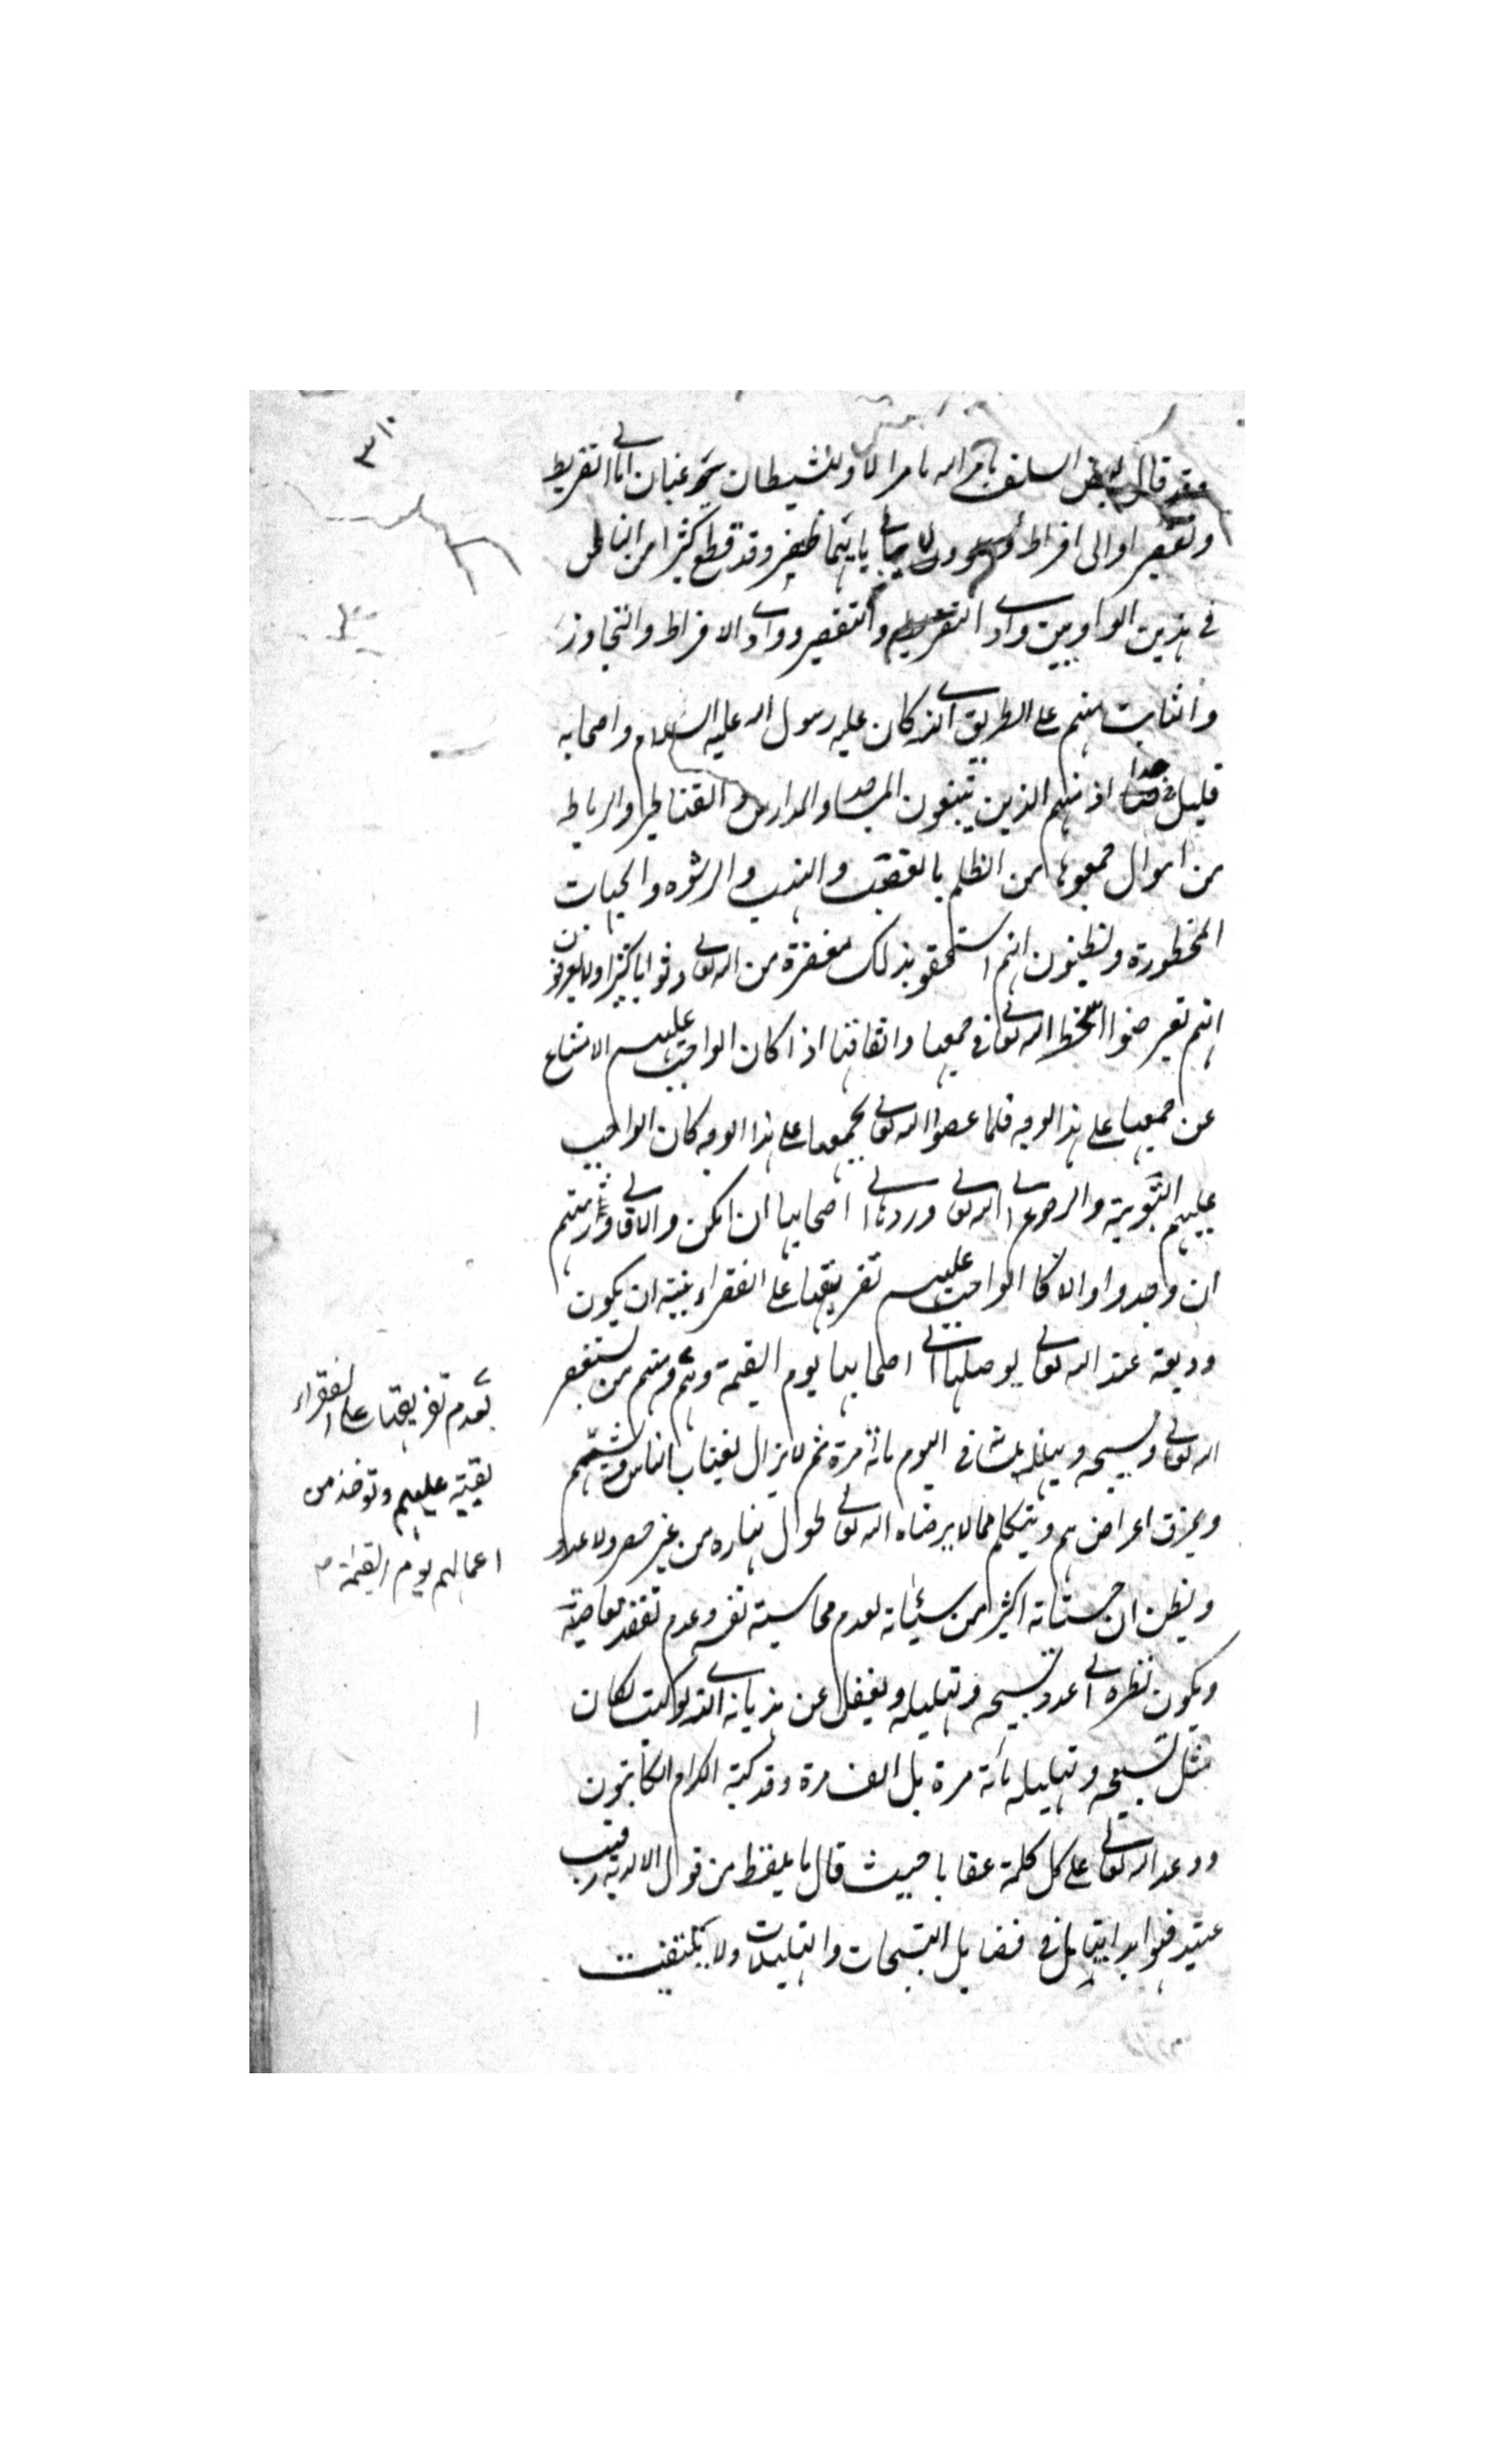 ٣١٠
فقد قال بعض السلف ما امر الله بامر الا وللشيطان نزعتان اما الى تفريط
وتقصير او الى افراط ولا يبالى بايهما ظفر وقد قطع كثيرا من الناس
فى هذين الواديين وادى التفريط والتقصير ووادى الافراط والتجاوز
والثابت منهم على الطريق الذى كان عليه رسول الله عليه السلام واصحابه
قليل جدا اذ منهم الذين يبنون المساجد والمدارس والقناطر والرباط
من اموال جمعوها من الظلم بالغصب والنهب والرشوه والجهات
المحظورة ويظنون انهم استحقو بذلك مغفرة من الله تعالى وثوابا كثيرا ولا يعرفون
انهم تعرضوا لسخط الله تعالى فى جمعها وانفاقها اذا كان الواجب عليهم الامتناع
عن جمعها على هذا الوجه فلما عصوا الله تعالى بجمعها على هذا الوجه كان الواجب
عليهم التوبة والرجوع الى الله تعالى وردها الى اصحابها ان امكن والا فالى وارثهم
ان وجدوا والا كان الواجب عليهم تفريقها على الفقراء بنية ان يكون
وديعة عند الله تعالى يوصلها الى اصحابها يوم القيمة ومنهم من يستغفر
الله تعالى ويسبحه ويهلله مثلا فى اليوم مائة مرة ثم لا يزال يغتاب الناس ويشتمهم
ويمزق اعراضهم ويتكلم مما لا يرضاه الله تعالى طول نهاره من غير حصر ولا عدد
ويظن ان حسناته اكثر من سيئاته لعدم محاسبته نفسه وعدم تفقد معاصيه
ويكون نظره الى عدد تسبيحه وتهليله ويغفل عن هذيانه الذى لو كتب لكان
مثل تسبيحه وتهليله مائة مرة بل الف مرة وقد كتبه الكرام الكاتبون
ووعد الله تعالى على كل كلمة عقابا حيث قال ما يلفظ من قول الا لديه رقيب
عتيد فهو ابدا يتامل فى فضايل التسبيحات والتهليلات ولا يلتفت
بعدم تفريقها على الفقراء
بقية عليهم وتوخذ من
اعمالهم يوم القيمة